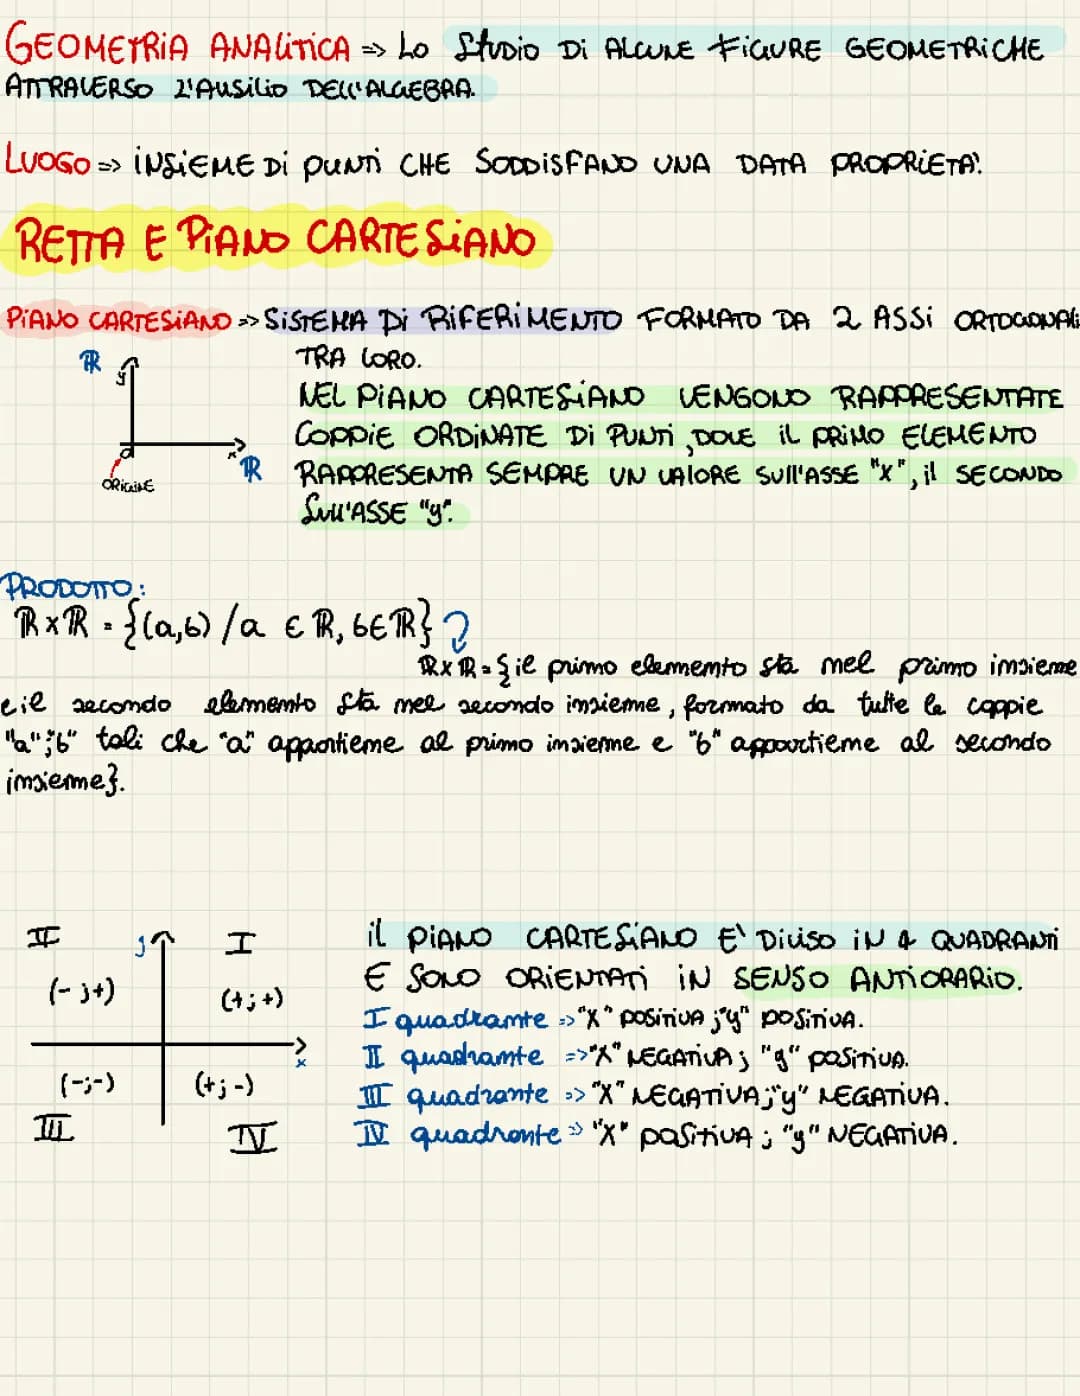 GEOMETRIA ANALITICA => LO STUDIO DI ALCUNE FIGURE GEOMETRICHE
ATTRAVERSO L'AUSILIO DELL'ALGEBRA.
LUOGO => INSIEME DI PUNTI CHE SODDISFANO UNA DATA PROPRIETA'.
RETTA E PIANO CARTESIANO
PIANO CARTESIANO => SISTEMA DI RIFERIMENTO FORMATO DA 2 ASSI ORTOGONALI
TRA LORO.
ℝ
y
x
ℝ
ORIGINE
NEL PIANO CARTESIANO VENGONO RAPPRESENTATE
COPPIE ORDINATE DI PUNTI, DOVE IL PRIMO ELEMENTO
RAPPRESENTA SEMPRE UN VALORE SULL'ASSE "X", il SECONDO
SULL'ASSE "y".
PRODOTTO:
ℝ×ℝ = {(a,b) / a ∈ ℝ, b∈ℝ}
ℝ×ℝ = {il primo elemento sta nel primo insieme
e il secondo elemento sta nel secondo insieme, formato da tutte le coppie
"a";"b" tali che "a" appartiene al primo insieme e "b" appartiene al secondo
insieme}.
II y I
(-;+) (+;+)
x
(-;-) (+;-)
III IV
il PIANO CARTESIANO E' DIVISO IN 4 QUADRANTI
E SONO ORIENTATI IN SENSO ANTIORARIO.
I quadrante => "X" POSITIVA ; "y" POSITIVA.
II quadrante => "X" NEGATIVA ; "y" POSITIVA.
III quadrante => "X" NEGATIVA ; "y" NEGATIVA.
IV quadrante => "X" POSITIVA ; "y" NEGATIVA.